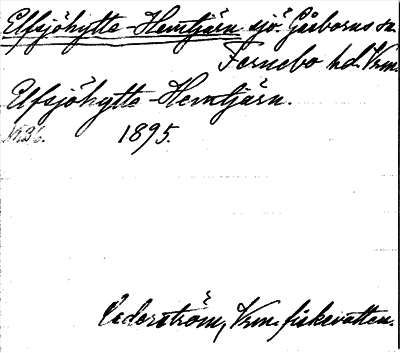 Elfsjöhytte-Hemtjärn sjö. Gåsborns sn.
Fernebo hd. Vrm.
Elfsjöhytte-Hemtjärn.
1895.
Cederström, Vrm. fiskevatten.